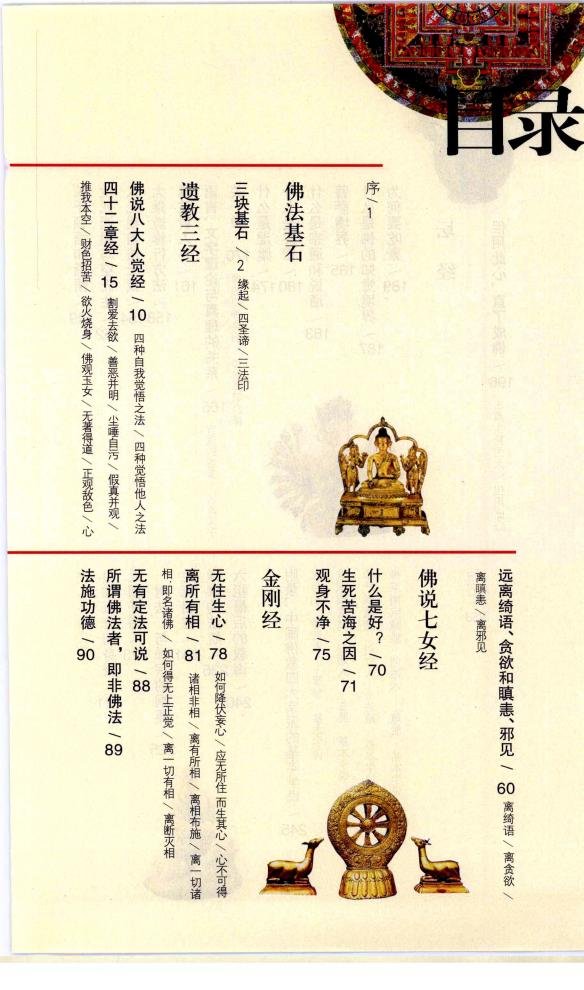 目录
序/1
佛法基石
三块基石/2 缘起/四圣谛/三法印
遗教三经
佛说八大人觉经/10 四种自我觉悟之法/四种觉悟他人之法
四十二章经/15 割爱去欲/善恶并明/尘唾自污/假真并观/
推我本空/财色招苦/欲火烧身/佛观玉女/无著得道/正观敌色/心
远离绮语、贪欲和瞋恚、邪见/60 离绮语/离贪欲/
离瞋恚/离邪见
佛说七女经
什么是好?/70
生死苦海之因/71
观身不净/75
金刚经
无住生心/78 如何降伏妄心/应无所住 而生其心/心不可得
离所有相/81 诸相非相/离有所相/离相布施/离一切诸
相:即名诸佛/如何得无上正觉/离一切有相/离断灭相
无有定法可说/88
所谓佛法者,即非佛法/89
法施功德/90